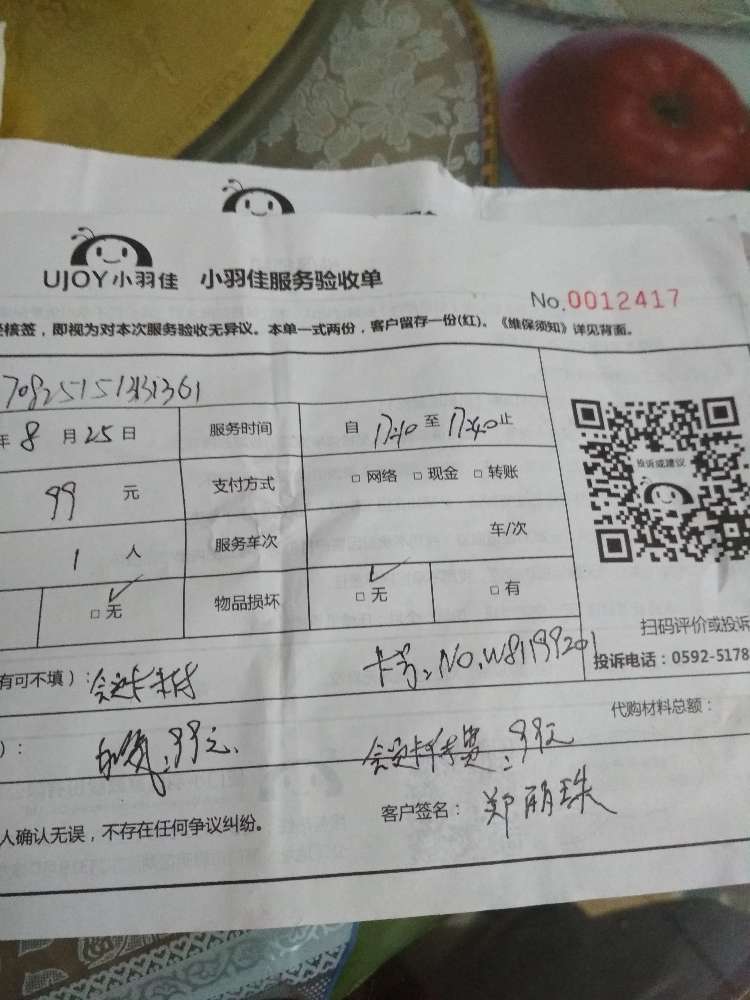 UJOY小羽佳 小羽佳服务验收单
No.0012417
核签，即视为对本次服务验收无异议。本单一式两份，客户留存一份(红)。《维保须知》详见背面。
年 8 月 25 日 服务时间 自 17:40 至 17:40 止
99 元 支付方式 □ 网络 □ 现金 □ 转账
投诉或建议
1 人 服务车次 车/次
□ 无 物品损坏 □ 无 □ 有
扫码评价或投诉
有可不填）： 卡号：NO.W81199201
投诉电话：0592-5178
代购材料总额：
）： 99元. 99元
客户签名： 郑丽珠
人确认无误，不存在任何争议纠纷。